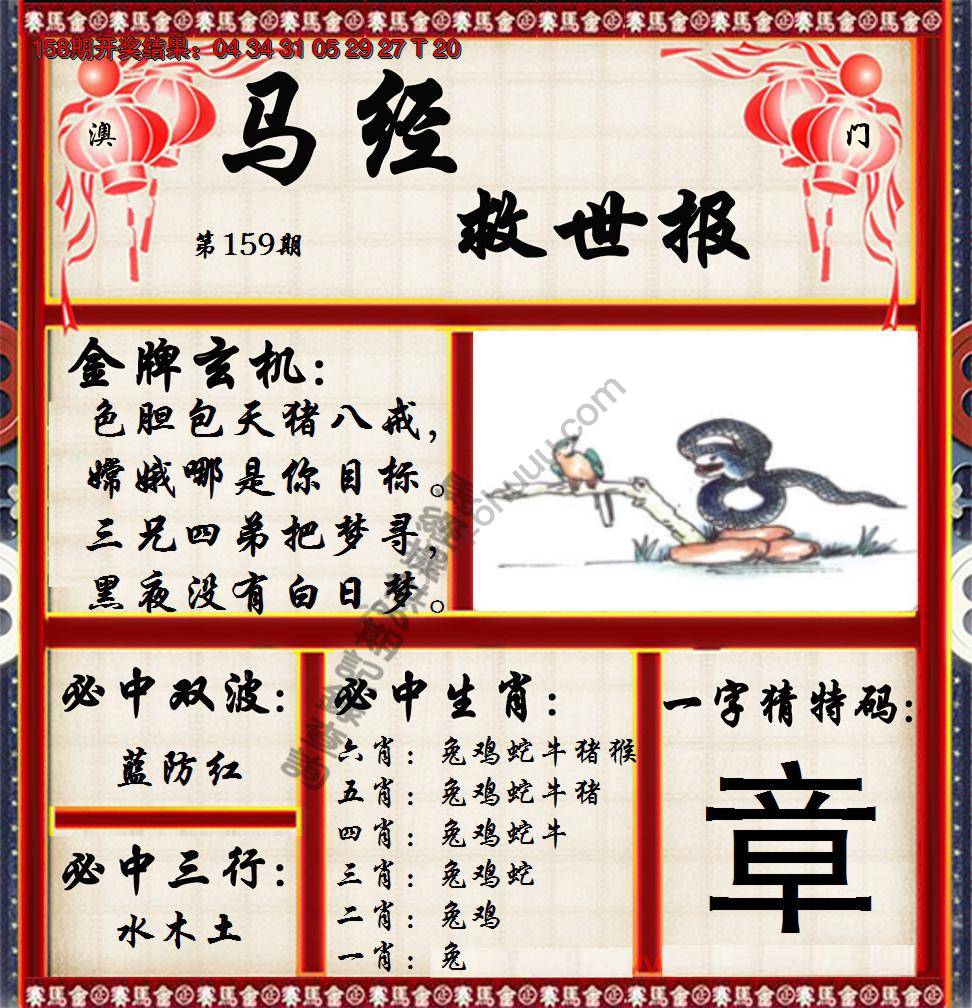 158期开奖结果：04 34 31 05 29 27 T 20
澳
门
马经
救世报
第159期
金牌玄机：
色胆包天猪八戒，
嫦娥哪是你目标。
三兄四弟把梦寻，
黑夜没有白日梦。
必中双波：
蓝防红
必中三行：
水木土
必中生肖：
六肖：兔鸡蛇牛猪猴
五肖：兔鸡蛇牛猪
四肖：兔鸡蛇牛
三肖：兔鸡蛇
二肖：兔鸡
一肖：兔
一字猜特码：
章